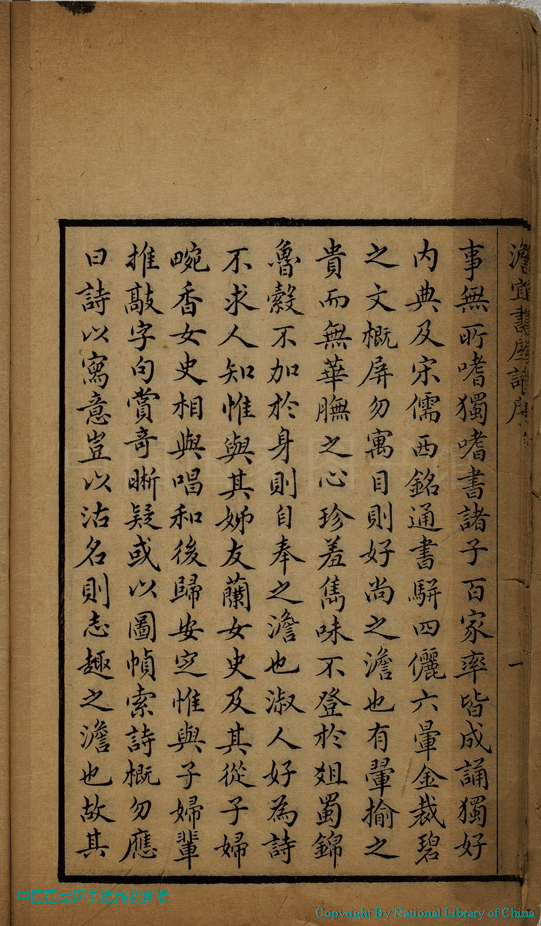 澹宜書屋詩序
一
事無所嗜獨嗜書諸子百家率皆成誦獨好
内典及宋儒西銘通書駢四儷六暈金裁碧
之文概屏勿寓目則好尚之澹也有翬揄之
貴而無華膴之心珍羞雋味不登於俎蜀錦
魯縠不加於身則自奉之澹也淑人好為詩
不求人知惟與其姊友蘭女史及其從子婦
畹香女史相與唱和後歸安定惟與子婦輩
推敲字句賞奇晰疑或以圖幀索詩概勿應
曰詩以寓意豈以沽名則志趣之澹也故其
Copyright By National Library of China